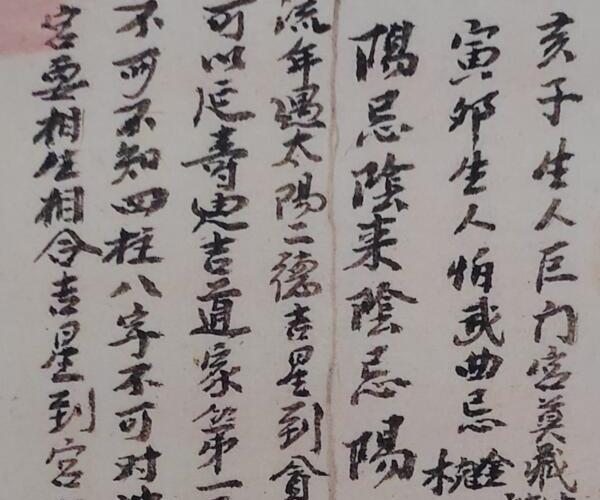 亥子生人巨门宫莫藏
寅卯生人怕武曲忌
陽忌陰来陰忌陽
流年遇太陽二德吉星到會
可以延壽迎吉道家第一
不可不知四柱八字不可对
宫要相生相合吉星到宫